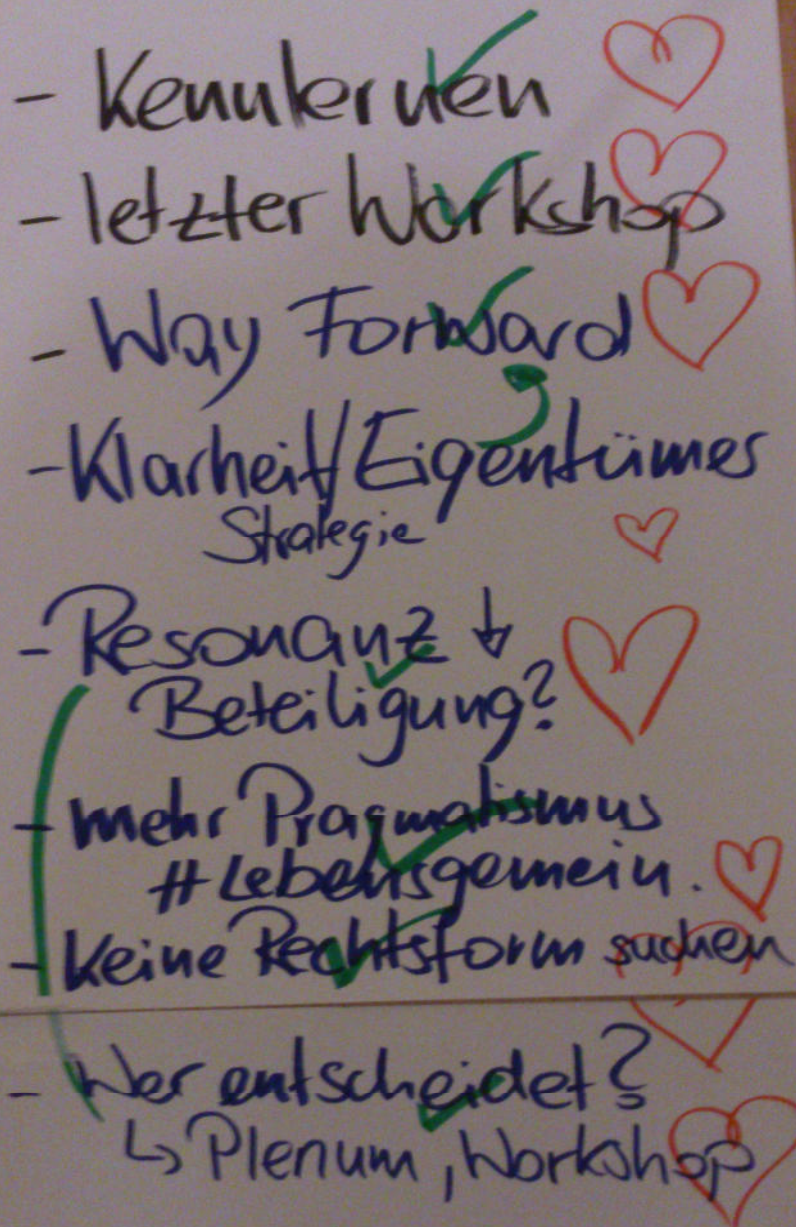 - Kennlernen
- letzter Workshop
- Way Forward
- Klarheit/Eigentümer
Strategie
- Resonanz ↓
Beteiligung?
- mehr Pragmatismus
# Lebensgemein.
- Keine Rechtsform suchen
- Wer entscheidet?
↳ Plenum, Workshop